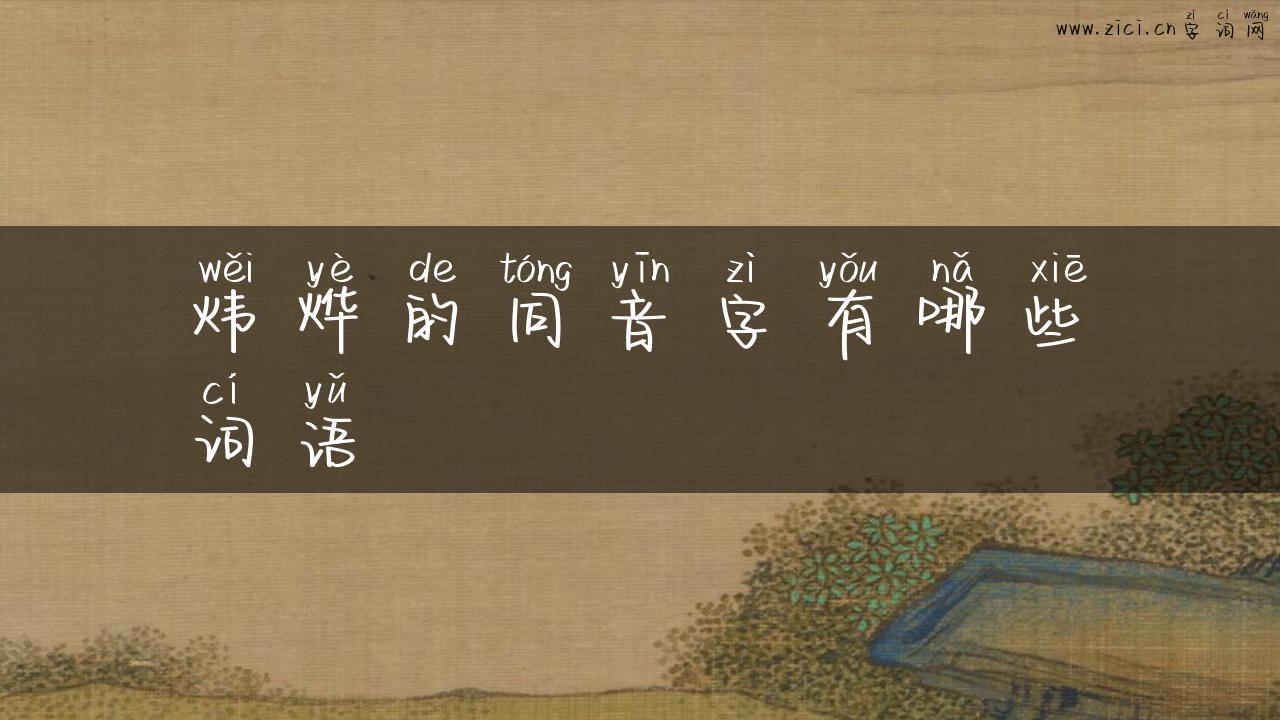 zì cí wǎng
www.zici.cn 字 词 网
wěi yè de tóng yīn zì yǒu nǎ xiē
炜 烨 的 同 音 字 有 哪 些
cí yǔ
词 语